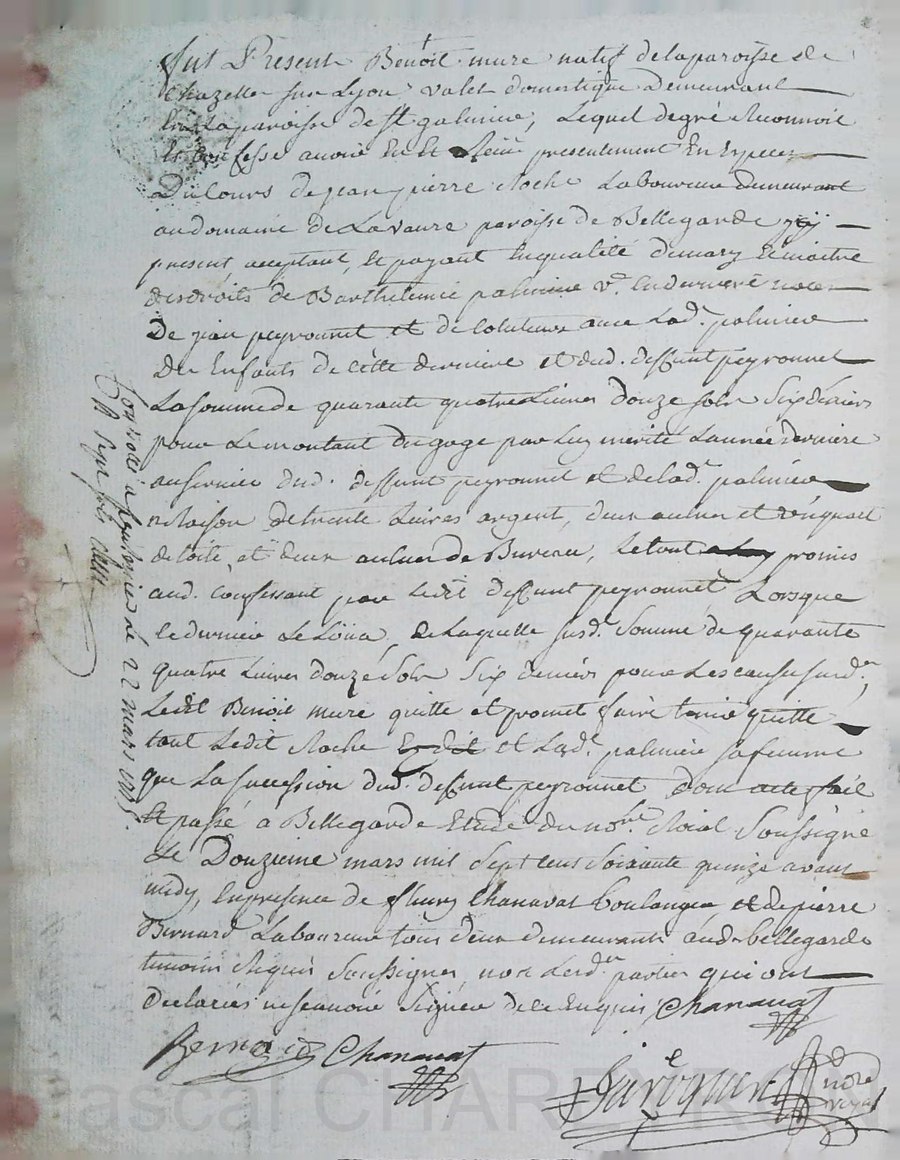 fut Present Benoit mure natif delaparoisse de
Chazelle sur Lyon valet domestique Demeurant
En Laparoisse de St galmier, Lequel degré Reconnoit
Et Confesse avoir Eu Et Reçu presentement En Especes
Du Cours de jean pierre Roche Laboureur demeurant
audomaine de Lavaure paroisse de Bellegarde
present, acceptant, et payant Enqualité demary Et maitre
desdroits de Barthelemie palmier ve. En
De jean peyronnet et de Cotuteur avec Lade. palmier
Des Enfants de Cette derniere et dud. deffunt peyronnet
Lasomme de quarante quatre Livres douze sols Six deniers
pour Le montant du gage par Luy merité Lannée derniere
auservice dud. deffunt peyronnet et de Lade. palmier
a Raison de trente Livres argent, deux aulnes et
de toile, et deux aulnes de Bureau, Le tout promis
aud. Confessant par Ledit deffunt peyronnet Lorsque
Ce dernier Le Loüa, de Laquelle susde. Somme de quarante
quatre Livres douze Sols Six deniers pour Les causes susdes.,
Ledit Benoit mure quitte et promet faire tenir quitte
tout Ledit Roche et Lade. palmier safemme
que La succession dud. deffunt peyronnet Dont acte fait
Et passé a Bellegarde Etude du nore. Roial Soussigné
Le Douzieme mars mil Sept cent Soixante quinze avant
midy, Enpresence de fleury Chanavat boulanger, et de pierre
Bernard Laboureur tous deux demeurants aud. bellegarde
temoins Requis Soussignés, non Lesdes. parties qui ont
declarés ne scavoir Signer de ce Enquis, Chanavat
Bernard Chanavat
nore royal
a Le 22 mars 1775.
Pascal CHAREYRON